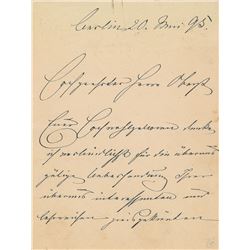 Berlin 20. Mai 95.
Hochgeehrter Herr Oberst
Euer Hochwohlgeboren danke
ich verbindlichst für die überaus
gütige Uebersendung Ihrer
überaus interessanten und
lehrreichen